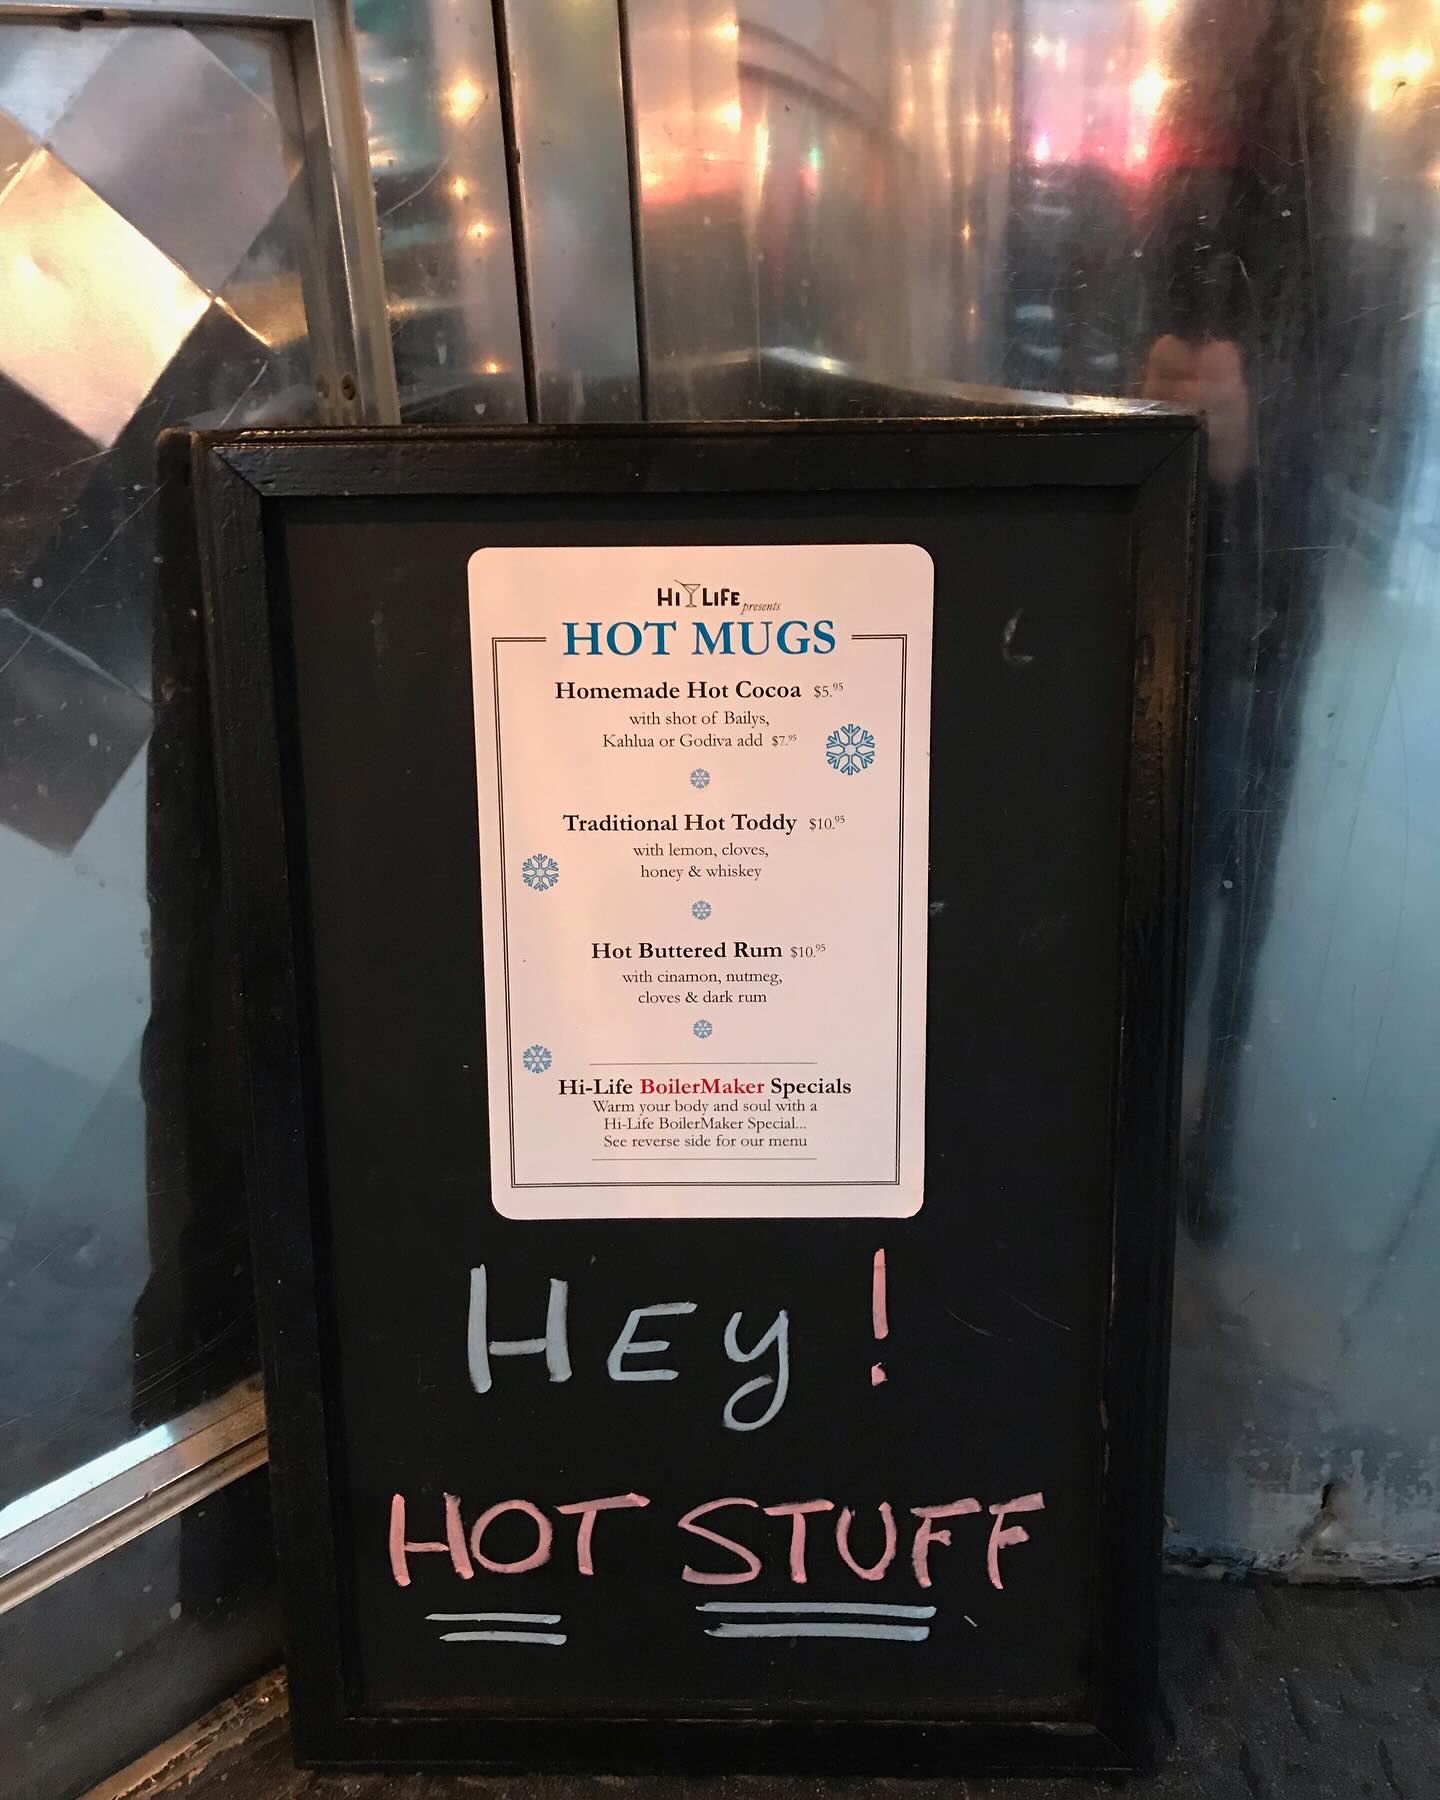 HI LIFE presents
HOT MUGS
Homemade Hot Cocoa $5.95
with shot of Bailys,
Kahlua or Godiva add $7.95
Traditional Hot Toddy $10.95
with lemon, cloves,
honey & whiskey
Hot Buttered Rum $10.95
with cinamon, nutmeg,
cloves & dark rum
Hi-Life BoilerMaker Specials
Warm your body and soul with a
Hi-Life BoilerMaker Special...
See reverse side for our menu
HEy!
HOT STUFF